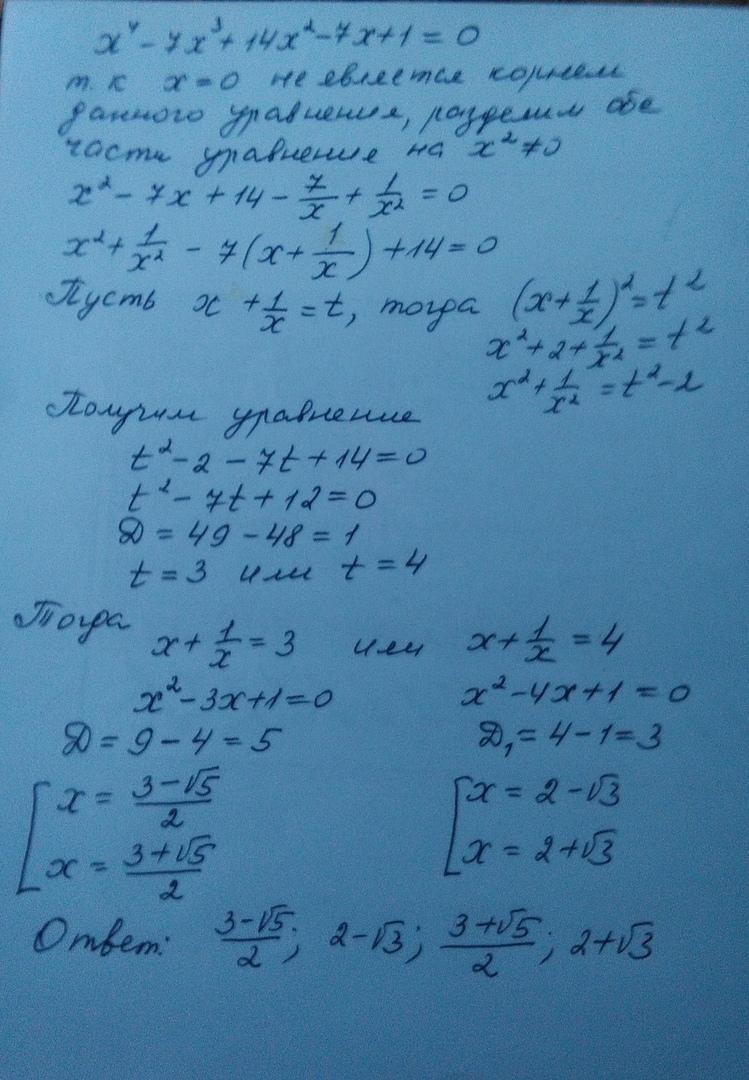 x⁴ - 7x³ + 14x² - 7x + 1 = 0
т. к x = 0 не является корнем
данного уравнения, разделим обе
части уравнения на x² ≠ 0
x² - 7x + 14 - 7/x + 1/x² = 0
x² + 1/x² - 7(x + 1/x) + 14 = 0
Пусть x + 1/x = t, тогда (x + 1/x)² = t²
x² + 2 + 1/x² = t²
x² + 1/x² = t² - 2
Получим уравнение
t² - 2 - 7t + 14 = 0
t² - 7t + 12 = 0
D = 49 - 48 = 1
t = 3 или t = 4
Тогда
x + 1/x = 3 или x + 1/x = 4
x² - 3x + 1 = 0 x² - 4x + 1 = 0
D = 9 - 4 = 5 D₁ = 4 - 1 = 3
x = (3 - √5)/2 x = 2 - √3
x = (3 + √5)/2 x = 2 + √3
Ответ: (3 - √5)/2; 2 - √3; (3 + √5)/2; 2 + √3